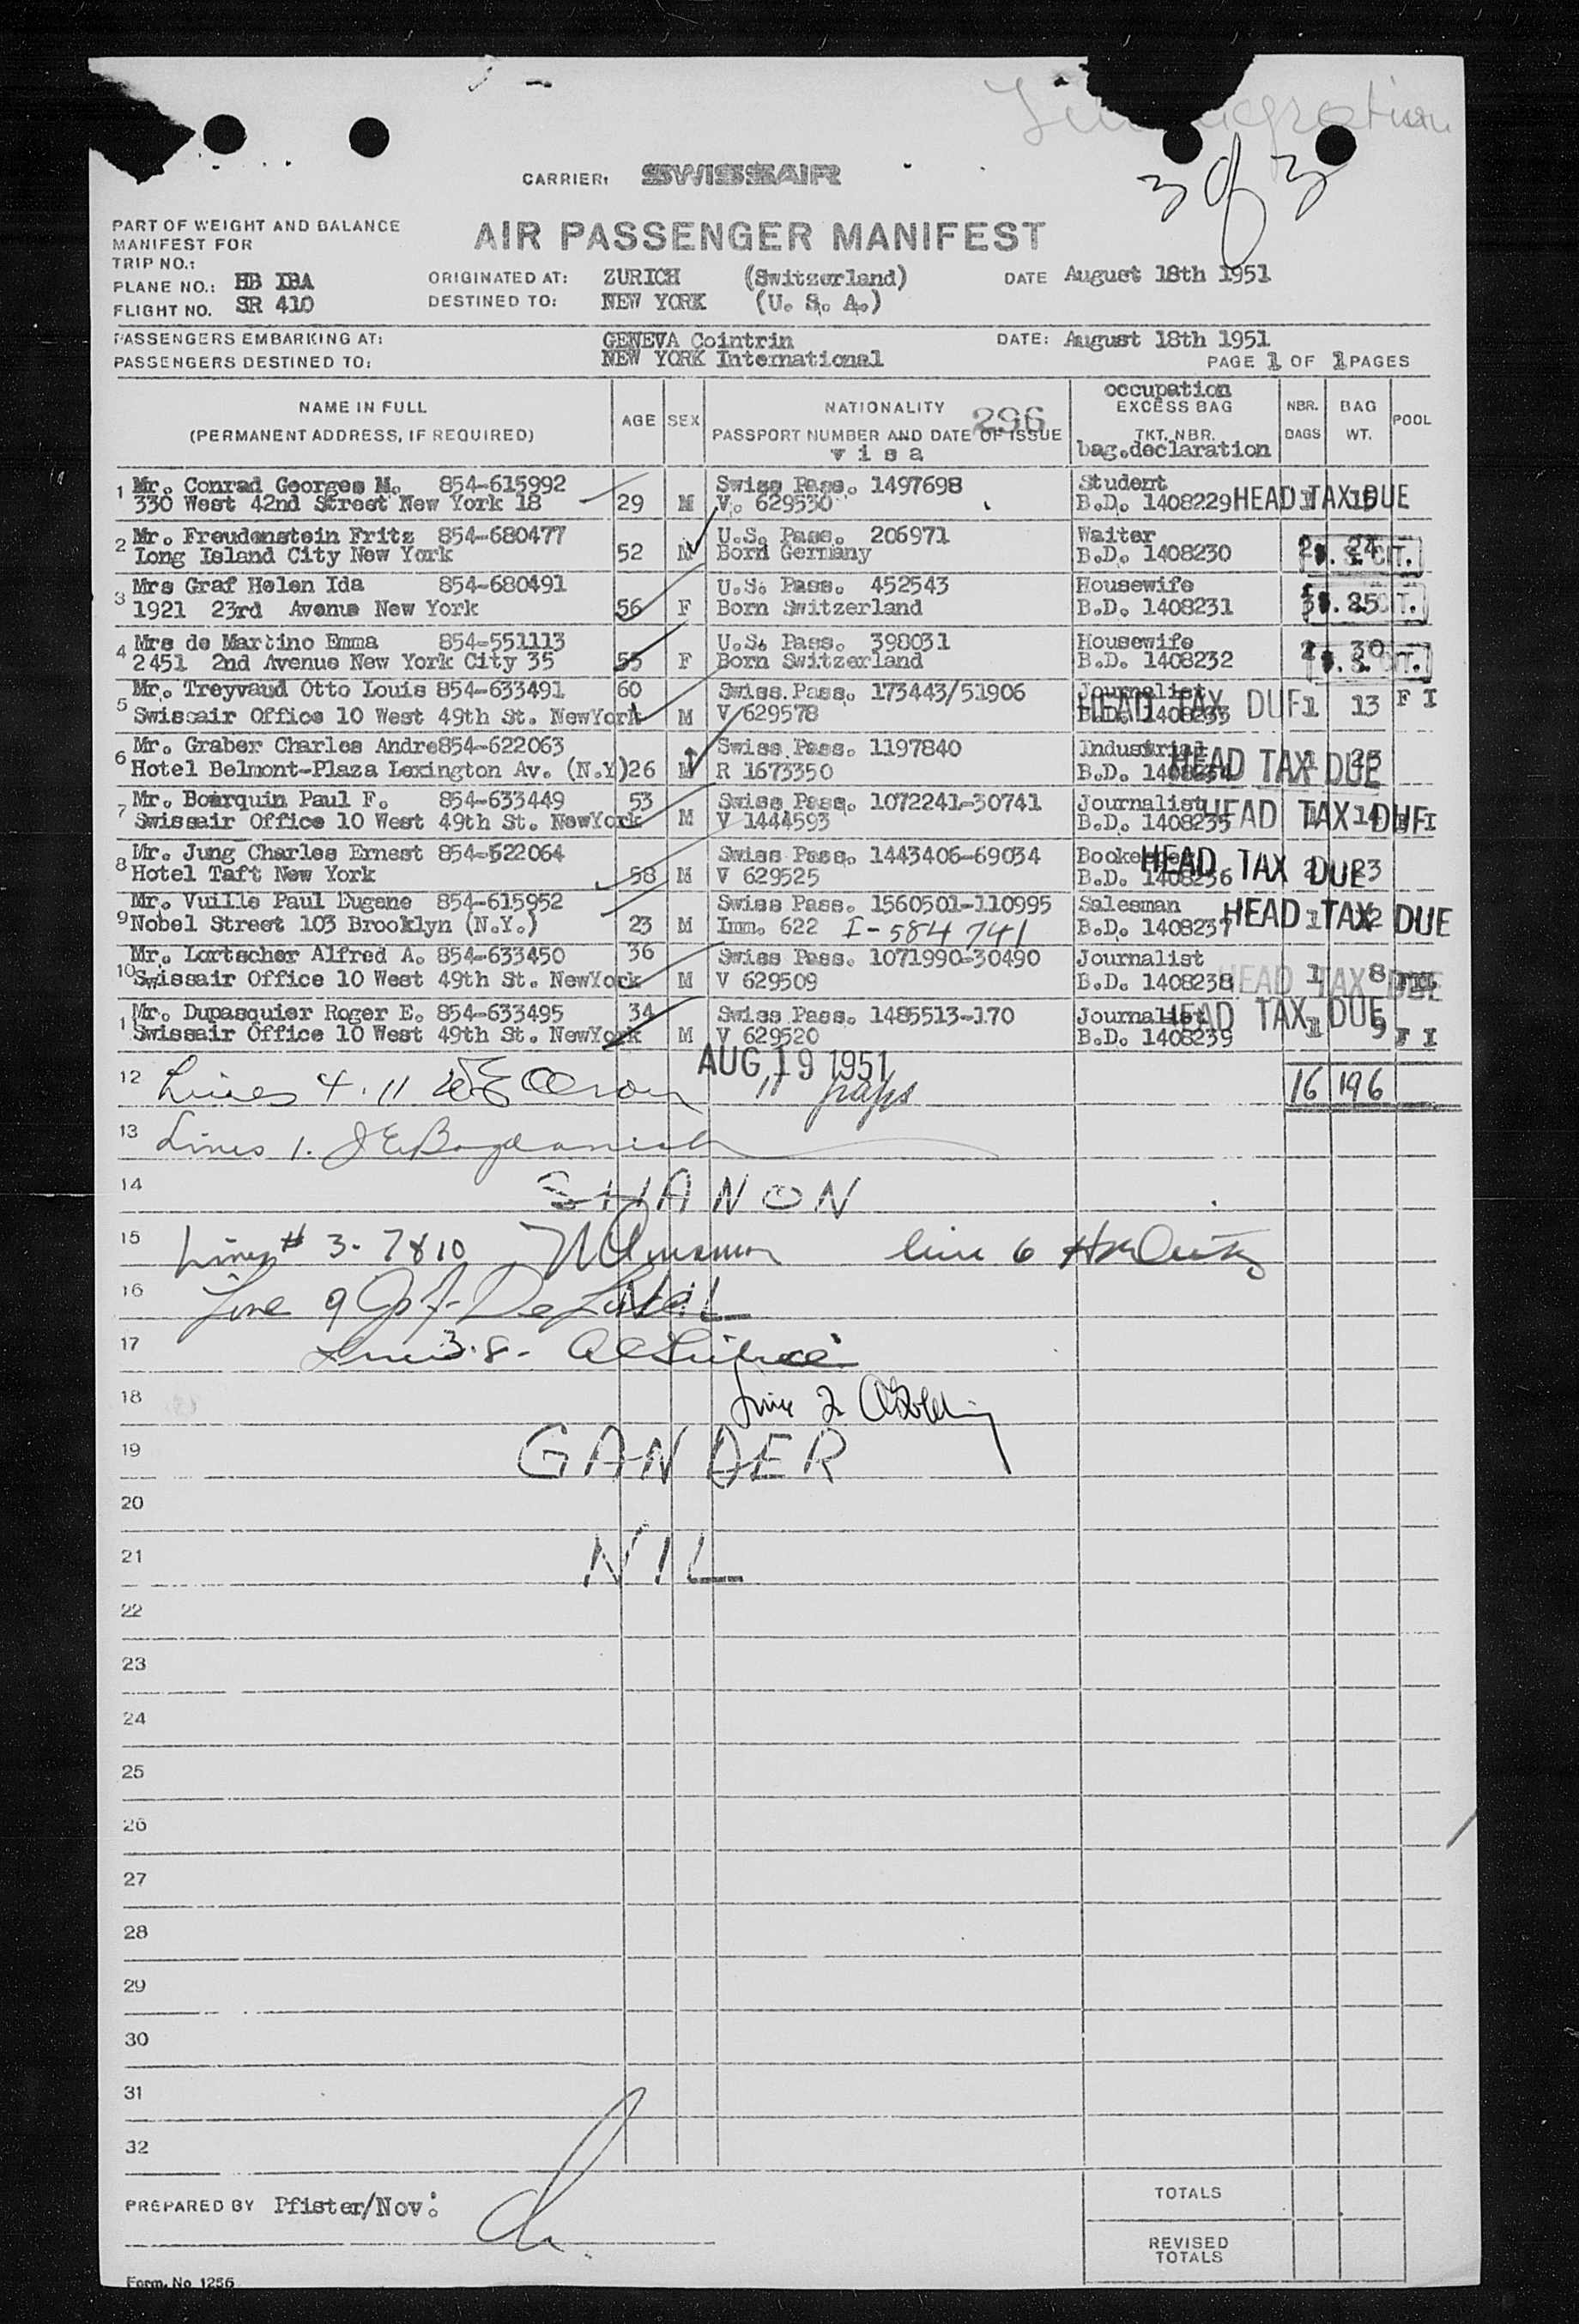 Immigration
3 of 3
CARRIER: SWISSAIR
PART OF WEIGHT AND BALANCE
MANIFEST FOR
AIR PASSENGER MANIFEST
TRIP NO.:
PLANE NO.: HB IBA ORIGINATED AT: ZURICH (Switzerland) DATE August 18th 1951
FLIGHT NO. SR 410 DESTINED TO: NEW YORK (U. S. A.)
PASSENGERS EMBARKING AT: GENEVA Cointrin DATE: August 18th 1951
PASSENGERS DESTINED TO: NEW YORK International PAGE 1 OF 1 PAGES
NAME IN FULL AGE SEX NATIONALITY 296 occupation EXCESS BAG NBR. BAG POOL
(PERMANENT ADDRESS, IF REQUIRED) PASSPORT NUMBER AND DATE OF ISSUE TKT. NBR. BAGS WT.
visa bag.declaration
1 Mr. Conrad Georges M. 854-615992 Swiss Pass. 1497698 Student
330 West 42nd Street New York 18 29 M V. 629530 B.D. 1408229 HEAD TAX DUE 1 16
2 Mr. Freudenstein Fritz 854-680477 U.S. Pass. 206971 Waiter
Long Island City New York 52 M Born Germany B.D. 1408230 2 24 U.S. CIT.
3 Mrs Graf Helen Ida 854-680491 U.S. Pass. 452543 Housewife
1921 23rd Avenue New York 56 F Born Switzerland B.D. 1408231 3 25 U.S. CIT.
4 Mrs de Martino Emma 854-551113 U.S. Pass. 398031 Housewife
2451 2nd Avenue New York City 35 55 F Born Switzerland B.D. 1408232 2 30 U.S. CIT.
5 Mr. Treyvaud Otto Louis 854-633491 60 Swiss Pass. 173443/51906 Journalist
Swissair Office 10 West 49th St. NewYork M V 629578 B.D. 1408233 HEAD TAX DUE 1 13 F I
6 Mr. Graber Charles Andre 854-622063 Swiss Pass. 1197840 Industrial
Hotel Belmont-Plaza Lexington Av. (N.Y) 26 M R 1673350 B.D. 1408234 HEAD TAX DUE 1 23
7 Mr. Bourquin Paul F. 854-633449 53 Swiss Pass. 1072241-30741 Journalist
Swissair Office 10 West 49th St. NewYork M V 1444593 B.D. 1408235 HEAD TAX DUE 1 14 F I
8 Mr. Jung Charles Ernest 854-622064 Swiss Pass. 1443406-69034 Bookeeper
Hotel Taft New York 58 M V 629525 B.D. 1408236 HEAD TAX DUE 2 23
9 Mr. Vuille Paul Eugene 854-615952 Swiss Pass. 1560501-110995 Salesman
Nobel Street 103 Brooklyn (N.Y.) 23 M Imm. 622 I-584741 B.D. 1408237 HEAD TAX DUE 1 12
10 Mr. Lortscher Alfred A. 854-633450 36 Swiss Pass. 1071990-30490 Journalist
Swissair Office 10 West 49th St. NewYork M V 629509 B.D. 1408238 HEAD TAX DUE 1 8 F I
11 Mr. Dupasquier Roger E. 854-633495 34 Swiss Pass. 1485513-170 Journalist
Swissair Office 10 West 49th St. NewYork M V 629520 B.D. 1408239 HEAD TAX DUE 1 9 F I
AUG 19 1951
12 Lines 4.11 11 paps 16 196
13 Lines 1.
14 SHANON
15 Lines # 3. 7 & 10 line 6
16 Line 9 NIL
17 Lines 3.8-
18 Line 2
19 GANDER
20
21 NIL
22
23
24
25
26
27
28
29
30
31
32
PREPARED BY Pfister/Nov. TOTALS
REVISED
TOTALS
Form. No 1256